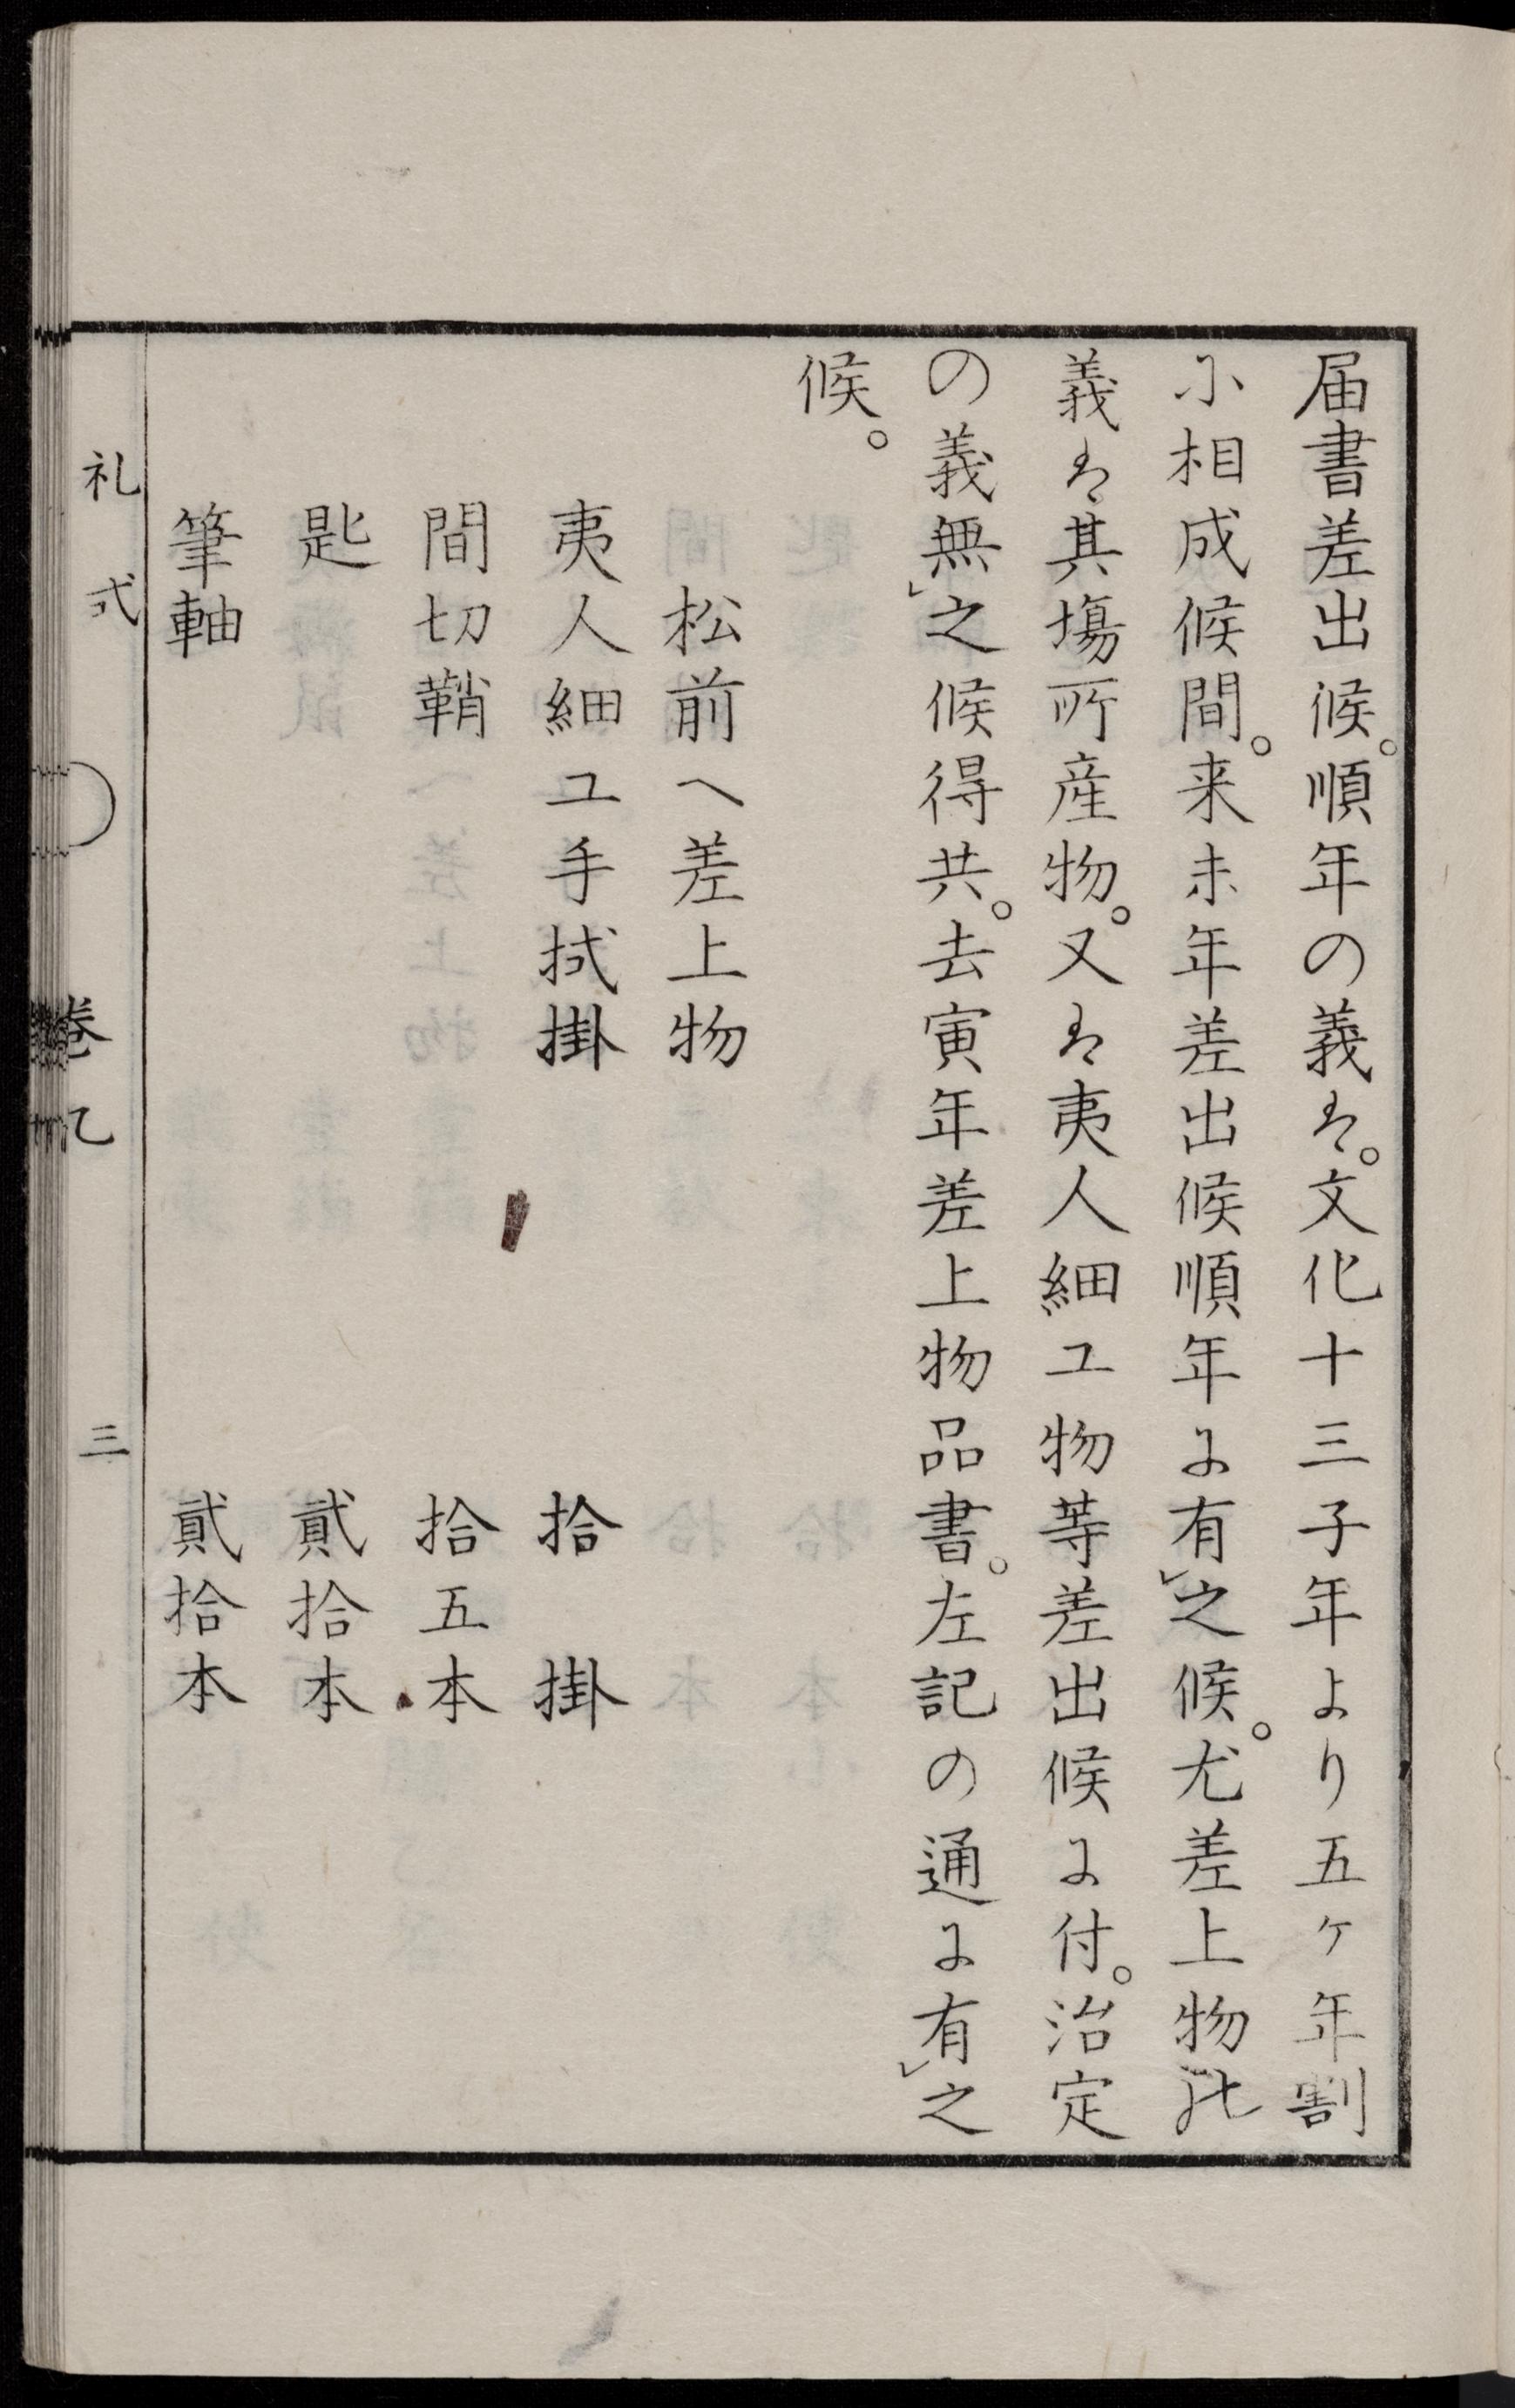 届書差出候。順年の義は。文化十三子年より五ケ年割
に相成候間。来未年差出候順年に有㆑之候。尤差上物の
義は其場所産物。又は夷人細工物等差出候に付。治定
の義無㆑之候得共。去寅年差上物品書。左記の通に有㆑之
候。
松前へ差上物
夷人細工手拭掛 拾掛
間切鞘 拾五本
匙 貳拾本
筆軸 貳拾本
礼式 巻乙 三